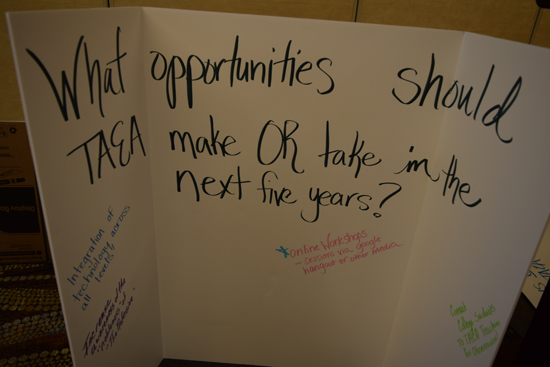 What opportunities should
TAEA make OR take in the
next five years?
Integration of
technology across
all levels!
*online Workshops
- sessions via google
hangout or other media
College Students